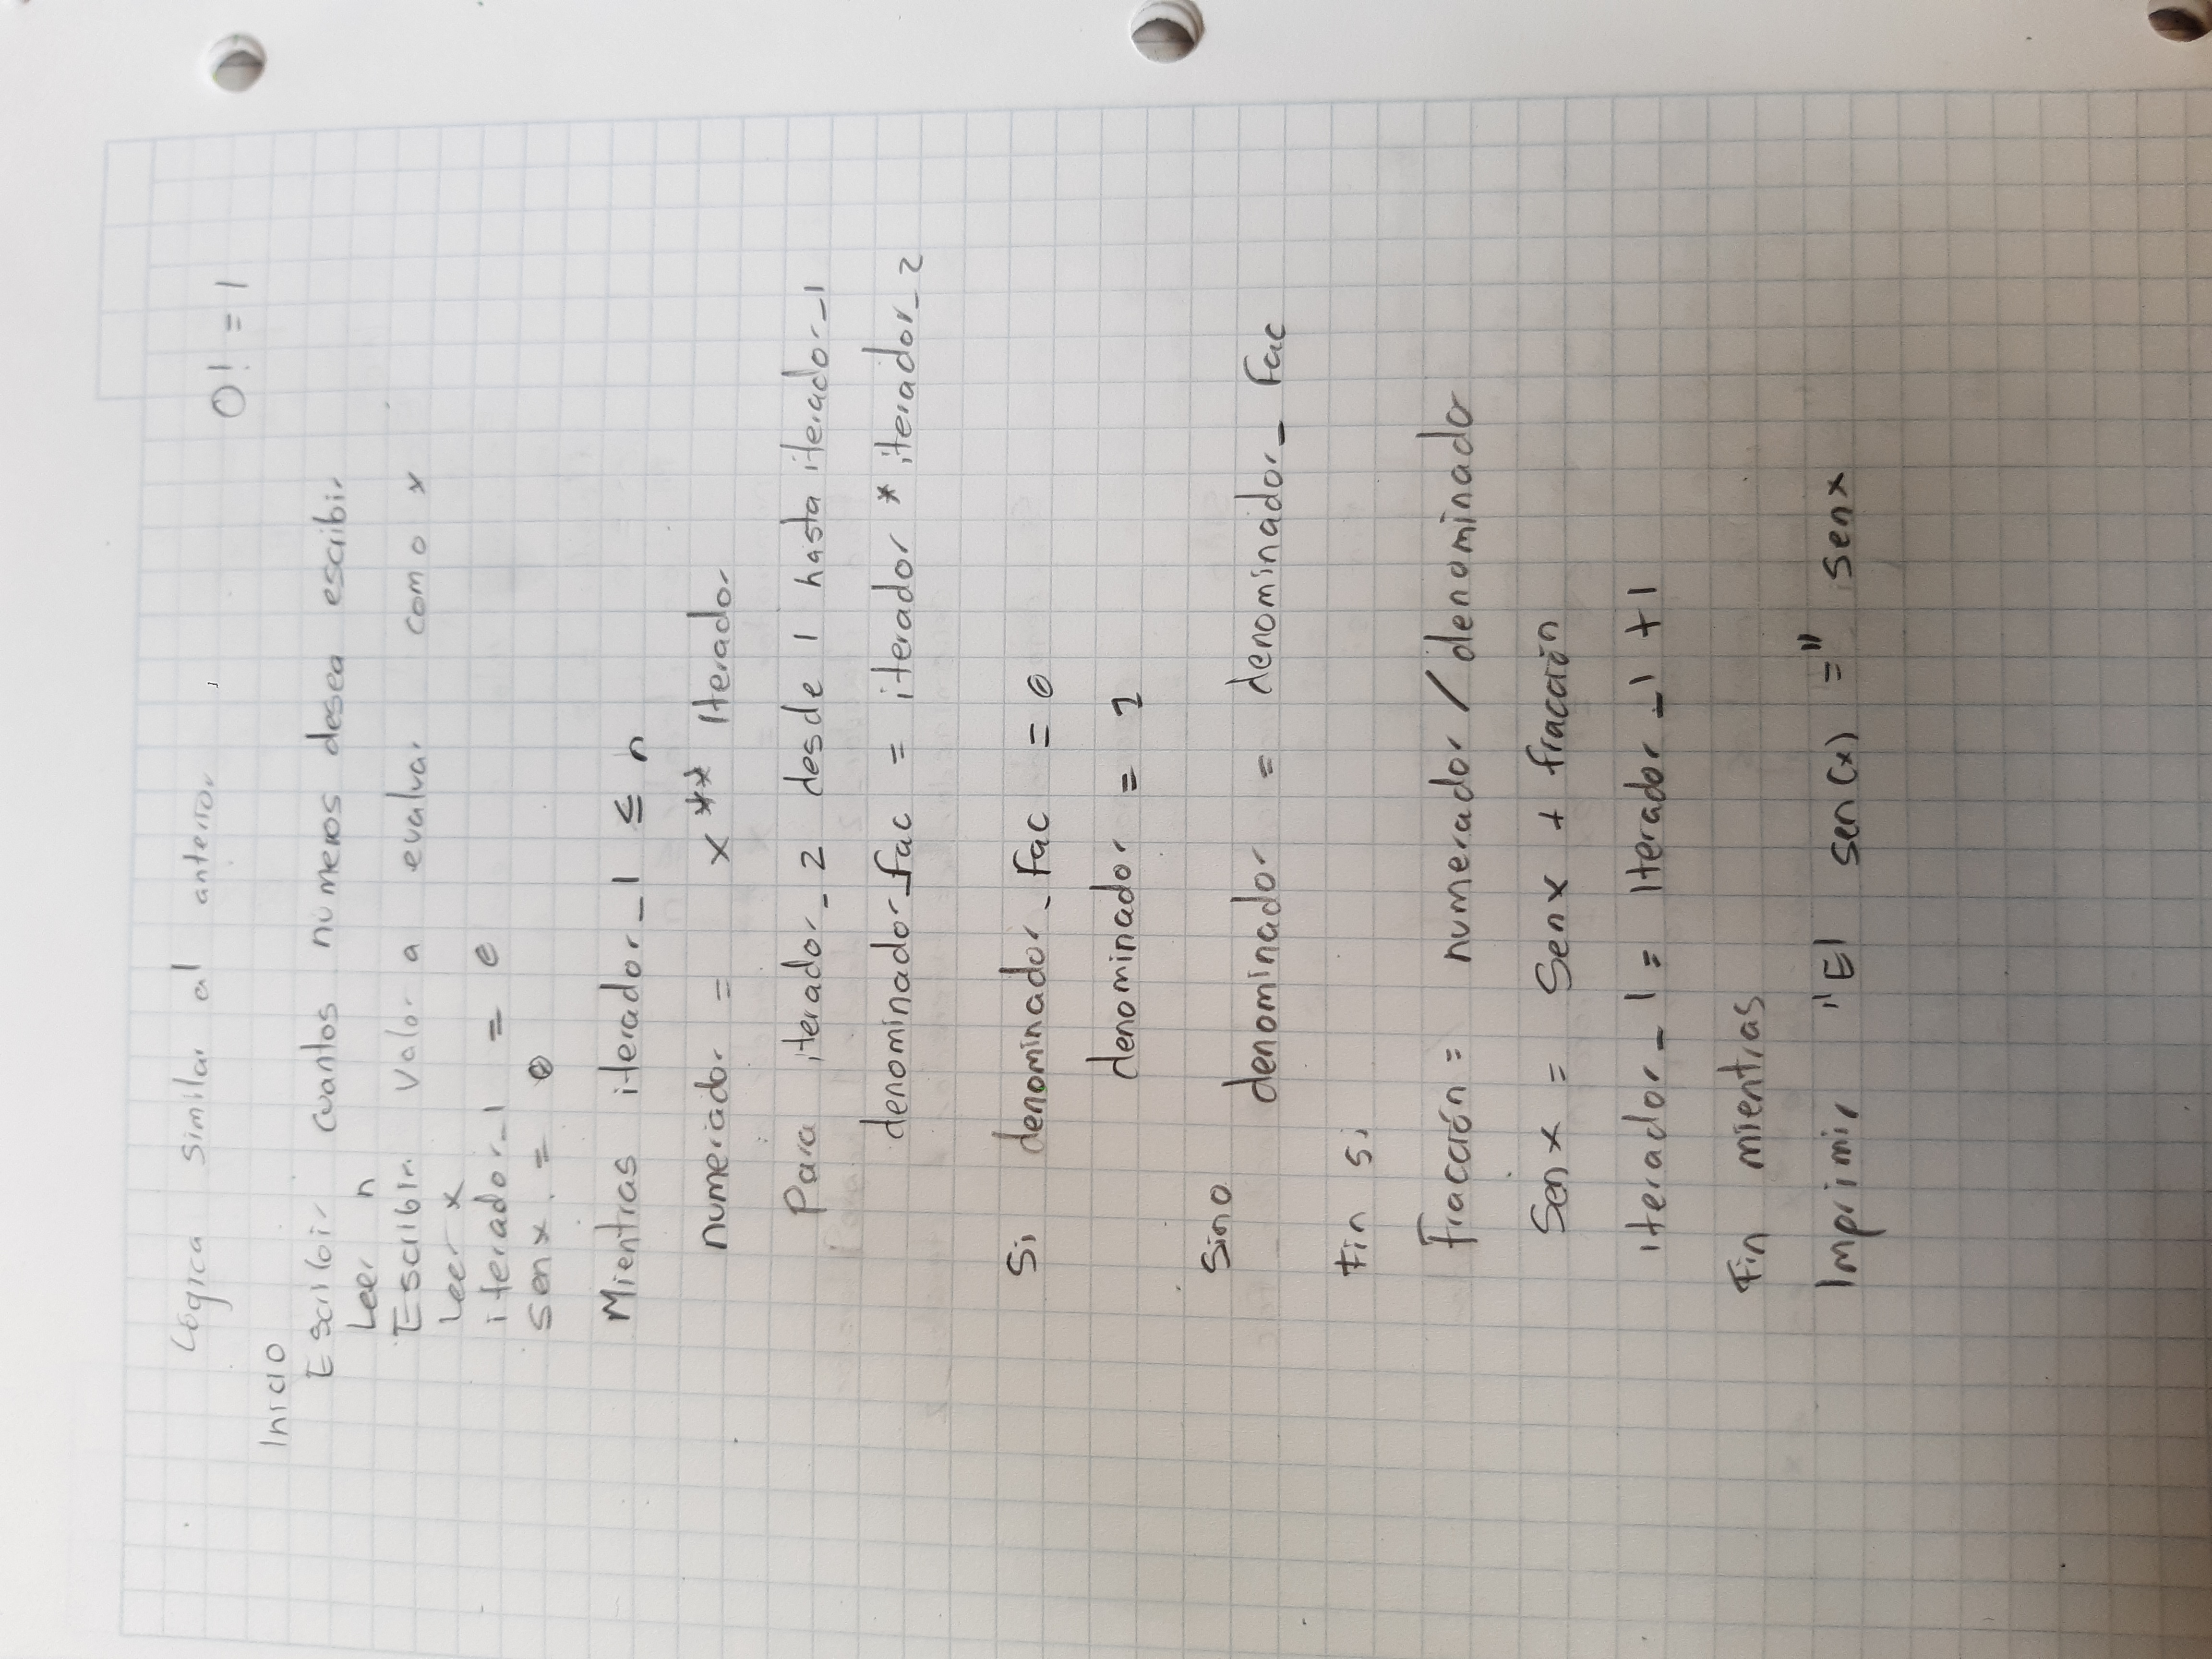 Lógica similar al anterior
0! = 1
Inicio
Escribir cuantos numeros desea escribir
Leer n
Escribir valor a evaluar como x
Leer x
iterador_1 = 0
senx = 0
Mientras iterador_1 ≤ n
numerador = x ** Iterador
Para iterador_2 desde 1 hasta iterador_1
denominador_fac = iterador * iterador_2
Si denominador_fac = 0
denominador = 1
Sino
denominador = denominador_fac
Fin si
fracción = numerador / denominador
Senx = Senx + fracción
iterador_1 = Iterador_1 + 1
Fin mientras
Imprimir "El sen(x) =" senx